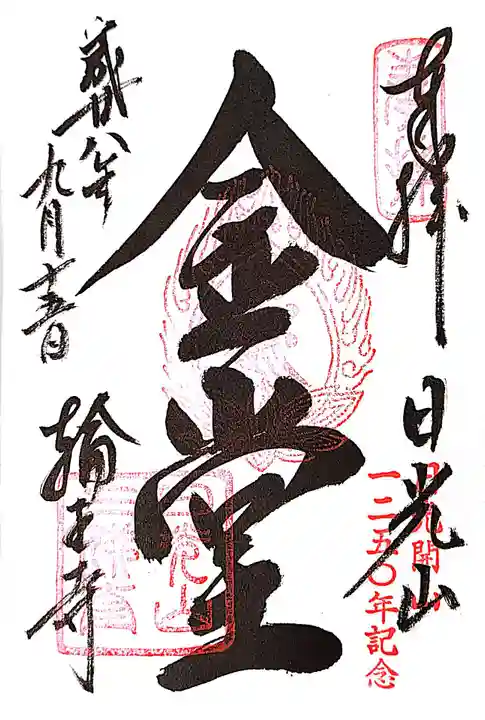 奉拝
日光山
日光開山
一二五〇年記念
金堂
平成廿八年
九月十五日
輪王寺